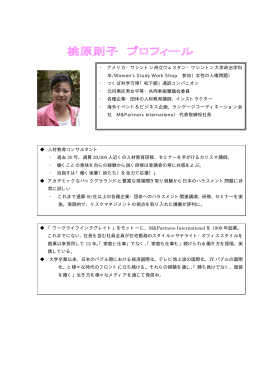 桃原則子 プロフィール
・ アメリカ・ワシントン州立ウェスタン・ワシントン大学政治学科
卒/Women's Study Work Shop 参加（女性の人権問題）
・ つくば科学万博「松下館」通訳コンパニオン
・ 元目黒区男女平等・共同参画審議会委員
・ 各種企業・団体の人材教育講師、インストラクター
・ 海外イベント＆ビジネス企画、ランゲージコーディネーション会
社 M&Partners International 代表取締役社長
◆ 人材教育コンサルタント
・ 過去 20 年、通算 39,000 人近くの人材育成研修、セミナーを手がけるカリスマ講師。
・ 働くことの意味を自らの経験から説く研修は受講者の常に共感をよぶ。
・ 目指すは「働く後輩（師たち）を全力で応援！」
◆ アカデミックなバックグラウンドと豊富な現場間を取り経験から日本のハラスメント問題に非
常に詳しい
・ これまで通算 90 社以上の各種企業・団体へのハラスメント関連講演、研修、セミナーを実
施。実践的で、リスクマネジメントの視点を取り入れた講義が評判に。
◆ 「ワークライフインテグレイト」をモットーに、M&Partners International を 1999 年起業。
これまでにない、社長を含む社員全員が在宅勤務のスタイル＝サテライト・オフィススタイルを
創業以来実行して 12 年。「家庭と仕事」でなく、「家庭も仕事も」続けられる働き方を提唱、実
践している。
◆ 大学卒業以来、日本のバブル期における経済国際化、テレビ地上波の国際化、IT バブルの国際
化、と様々な時代のフロントに立ち続ける。それらの経験を通し、「勝ち負けでなく、価値
を創」く生き方を様々なメディアを通じて発信。